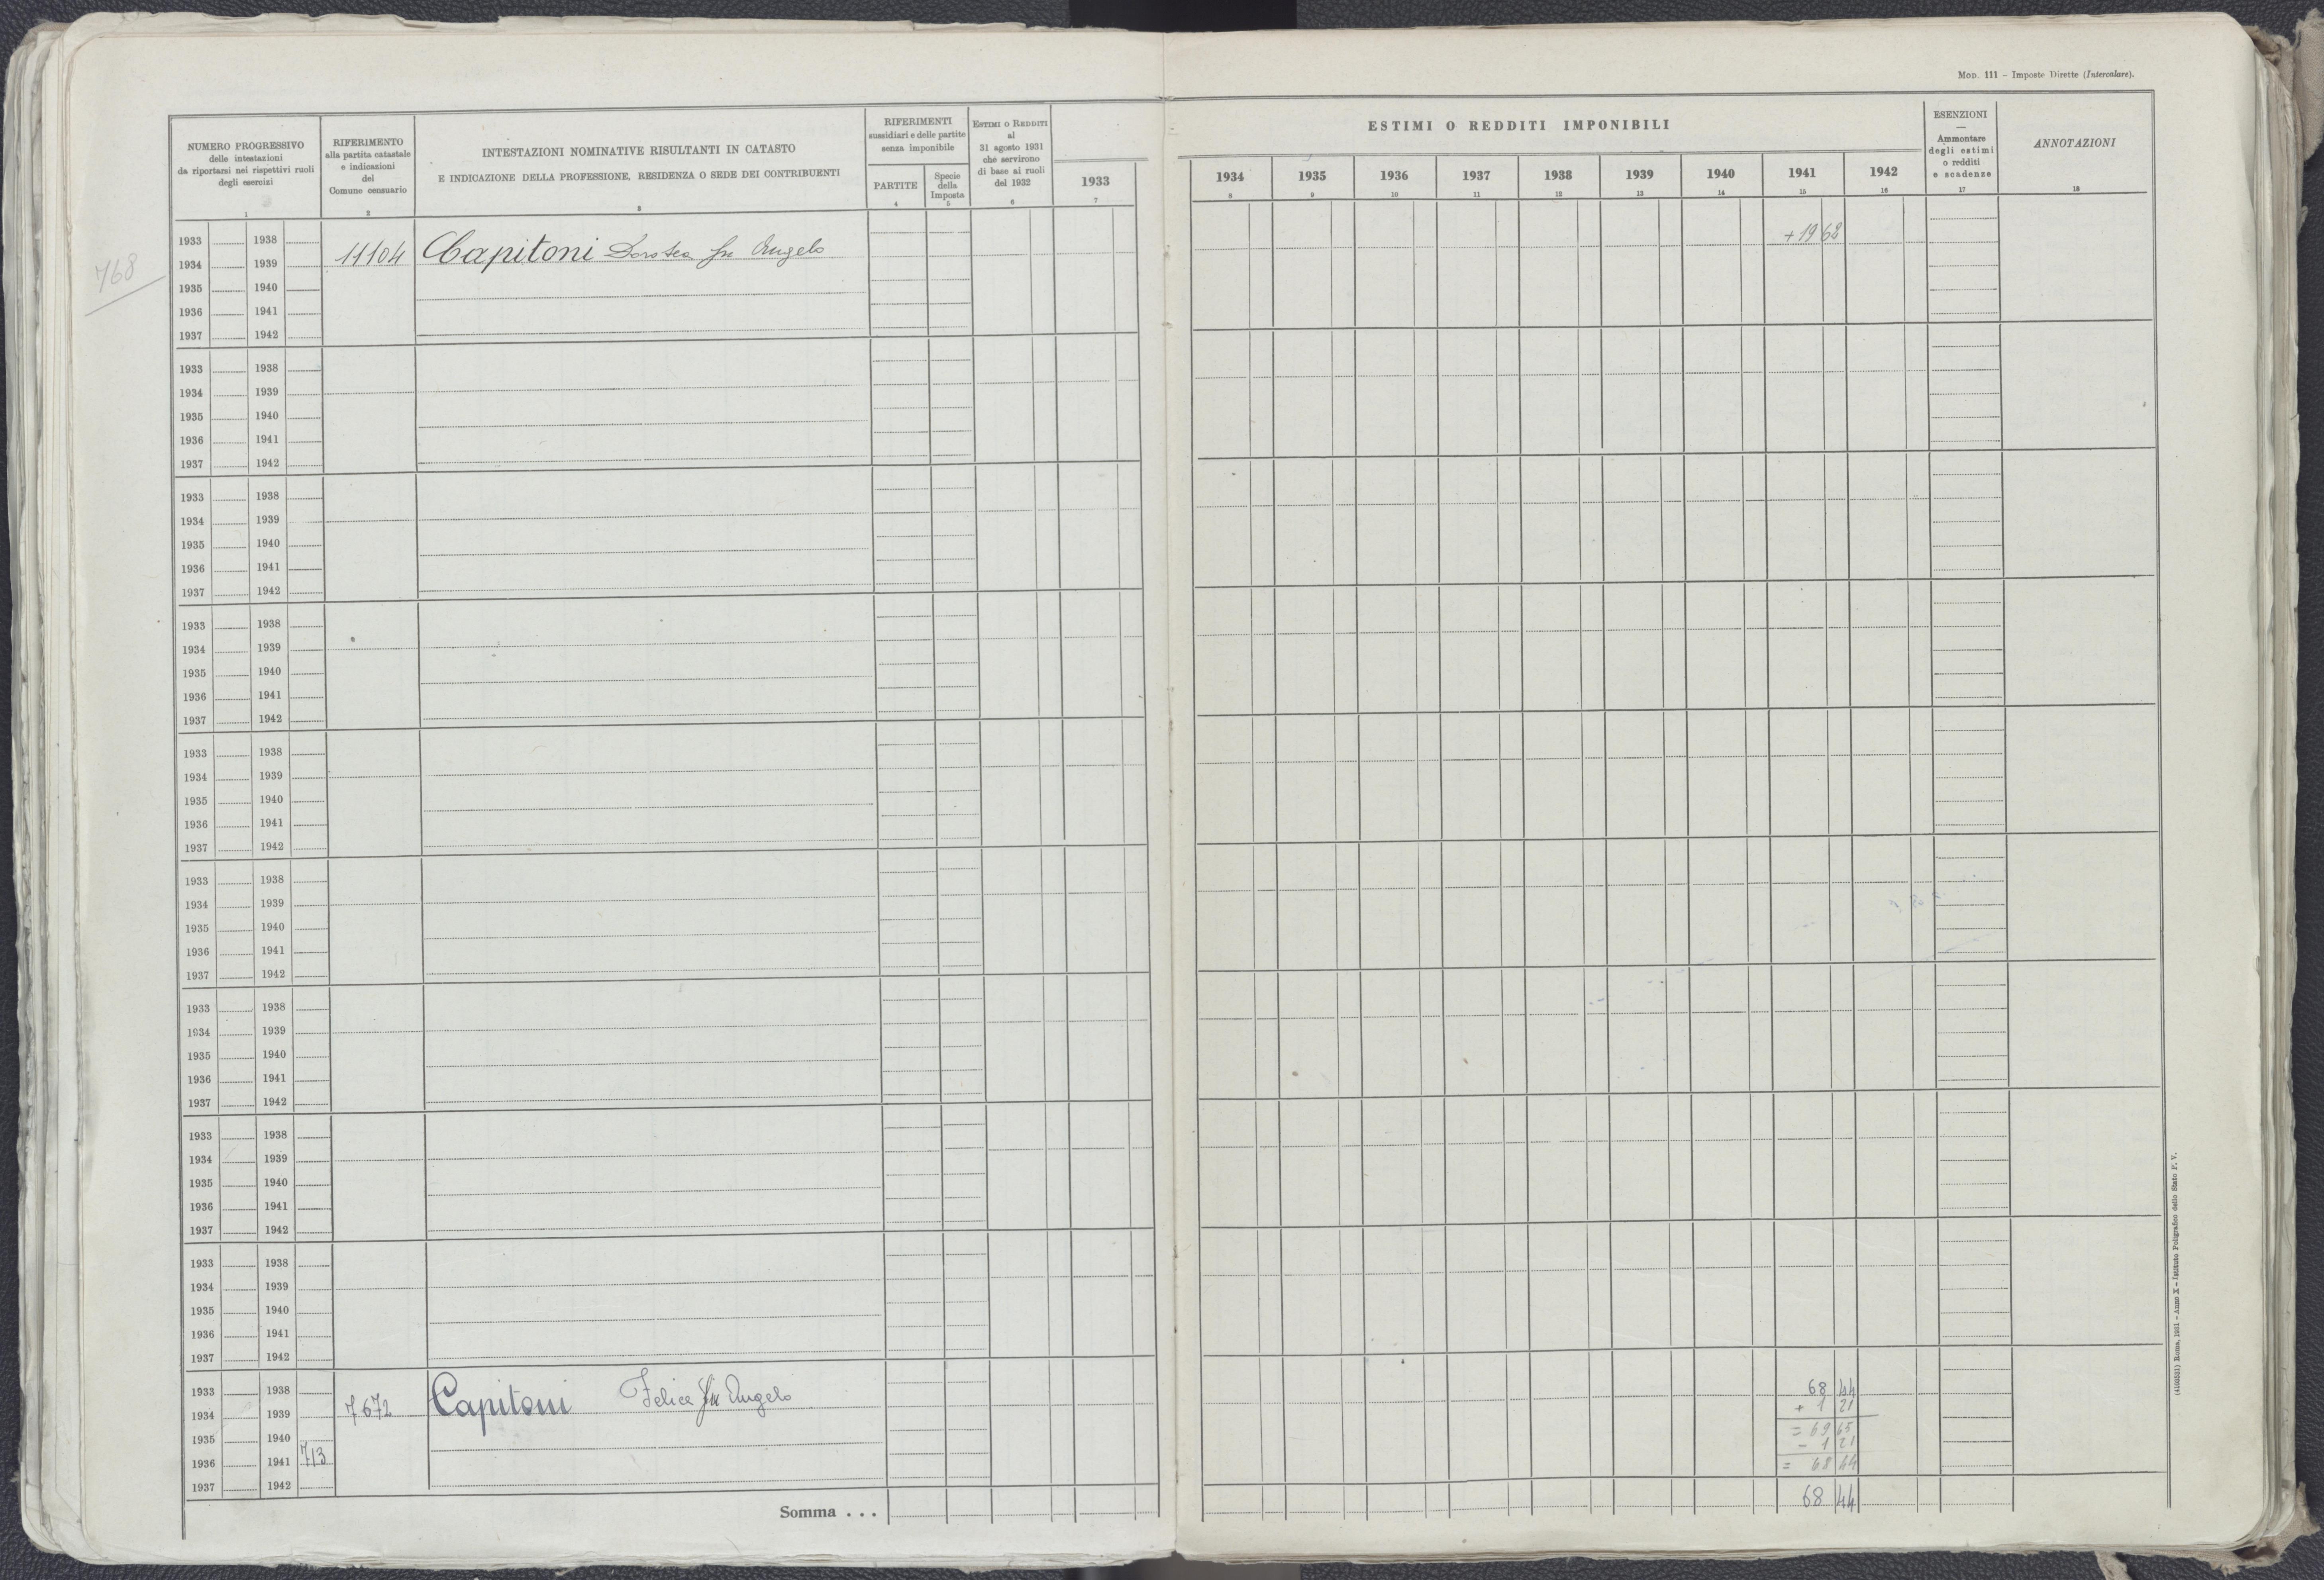 MOD. 111 - Imposte Dirette (Intercalare).
NUMERO PROGRESSIVO
delle intestazioni
da riportarsi nei rispettivi ruoli
degli esercizi
1
RIFERIMENTO
alla partita catastale
e indicazioni
del
Comune censuario
2
INTESTAZIONI NOMINATIVE RISULTANTI IN CATASTO
E INDICAZIONE DELLA PROFESSIONE, RESIDENZA O SEDE DEI CONTRIBUENTI
3
RIFERIMENTI
sussidiari e delle partite
senza imponibile
PARTITE
4
Specie
della
Imposta
5
ESTIMI O REDDITI
al
31 agosto 1931
che servirono
di base ai ruoli
del 1932
6
1933
7
ESTIMI O REDDITI IMPONIBILI
1934 1935 1936 1937 1938 1939 1940 1941 1942
8 9 10 11 12 13 14 15 16
ESENZIONI
—
Ammontare
degli estimi
o redditi
e scadenze
17
ANNOTAZIONI
18
768
1933 1938
1934 1939
1935 1940
1936 1941
1937 1942
11104 Capitoni Dorotea fu Angelo
+ 19 62
1933 1938
1934 1939
1935 1940
1936 1941
1937 1942
1933 1938
1934 1939
1935 1940
1936 1941
1937 1942
1933 1938
1934 1939
1935 1940
1936 1941
1937 1942
1933 1938
1934 1939
1935 1940
1936 1941
1937 1942
1933 1938
1934 1939
1935 1940
1936 1941
1937 1942
1933 1938
1934 1939
1935 1940
1936 1941
1937 1942
1933 1938
1934 1939
1935 1940
1936 1941
1937 1942
1933 1938
1934 1939
1935 1940
1936 1941
1937 1942
1933 1938
1934 1939
1935 1940
1936 1941 713
1937 1942
7672 Capitoni Felice fu Angelo
68 44
+ 1 21
= 69 65
- 1 21
= 68 44
Somma . . .
68 44
(4100531) Roma, 1931 - Anno X - Istituto Poligrafico dello Stato P. V.